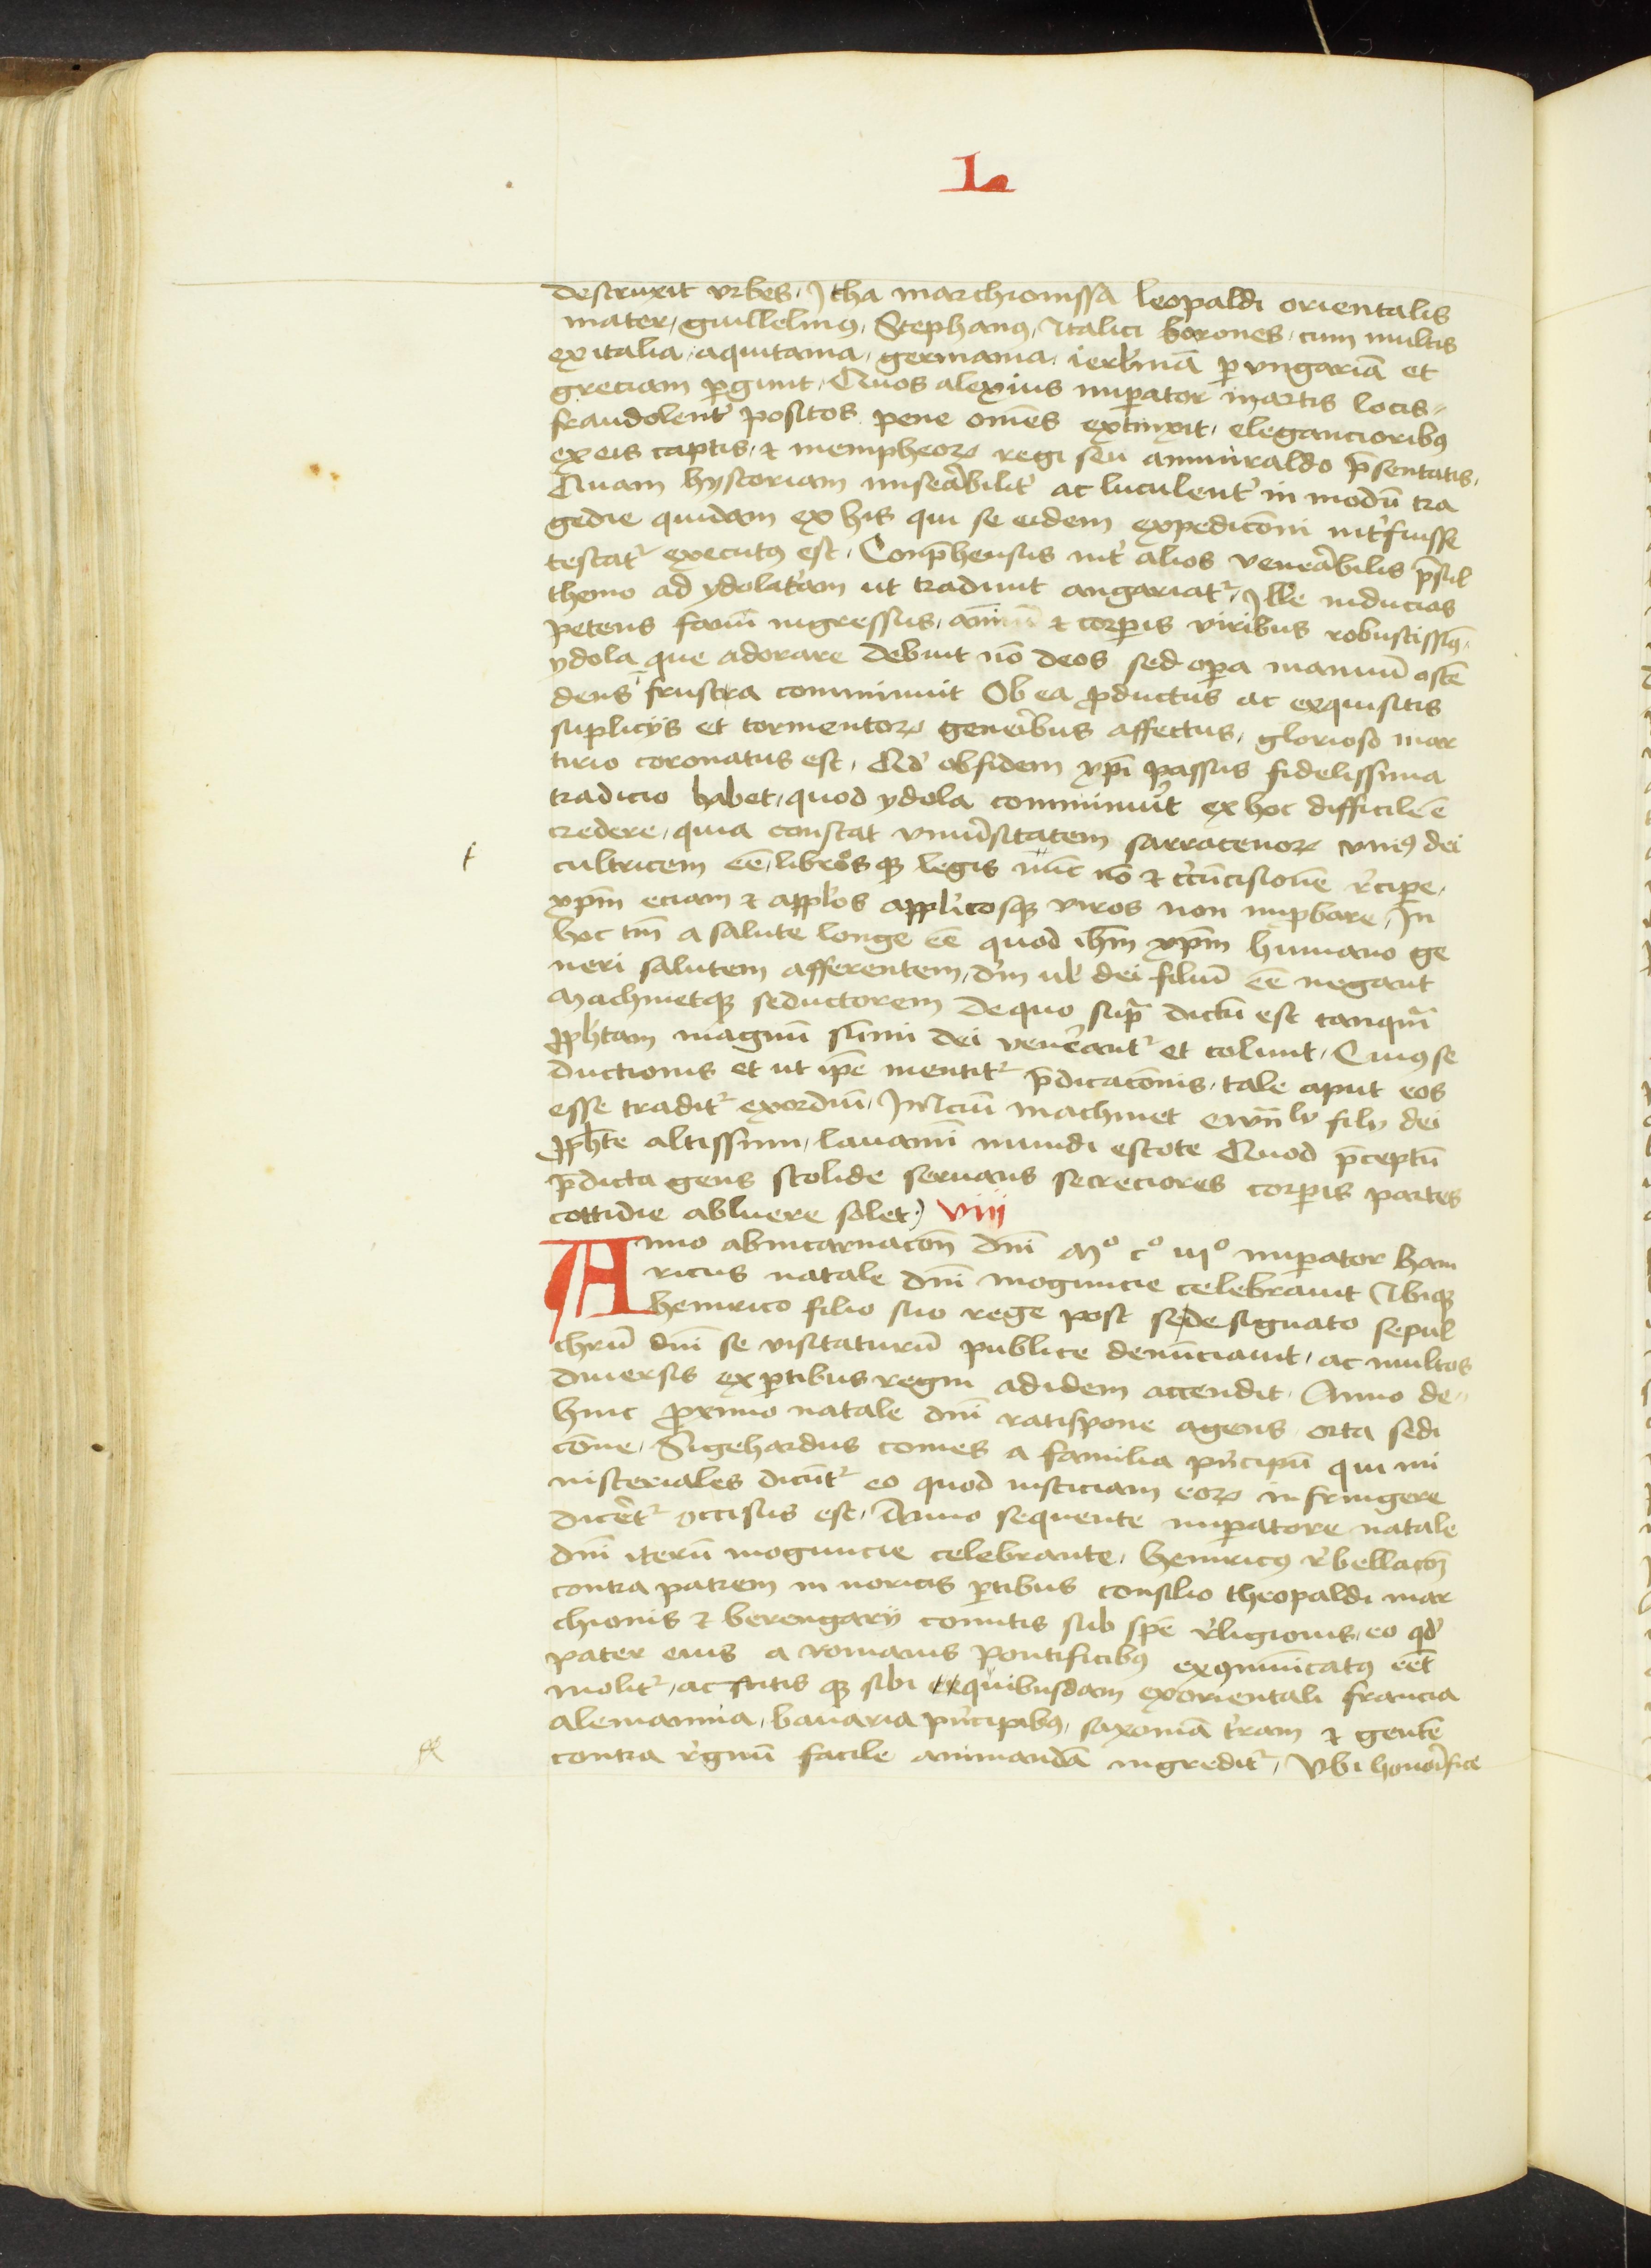 L
destruxit vrbes, Itha marchionissa leopaldi orientalis
mater, guillelm9, Stephan9, Italici borones, cum multis
ex italia, aquitania, germania, ierl̕mā ꝑ vngariā et
greciam ꝑgunt, Quos alexius imꝑator in artis locis
fraudolent̕ positos pene om̄es extinxit, elegancioribꝫ
ex eis captis, ⁊ mempheoꝝ regi seu ammiraldo p̄sentatis,
Quam hystoriam miserabilit̕ ac luculent̕ in modū tra
gedie quidam ex his qui se eidem expedicōni int̕fuisse
testat̕ executꝰ est, Conp̄hensus int̕ alios venerabilis p̄sul
themo ad ydolat̕am ut tradunt angariat̕, Ille inducias
petens fanū ingressus, ⁊ corꝑis viribus robustissimꝰ,
ydola que adorare debuit nō deos sed opa manuū ostē
dens frustra comminuit Ob ea ꝓductus ac exquisitis
suplicijs et tormentoꝝ generibus affectus, glorioso mar
tirio coronatus est, Qd̕ obsidem xp̄i passus fidelissima
tradicio habet, quod ydola comminuerit ex hoc difficile ē
credere, quia constat vniu̕sitatem sarracenoꝝ vniꝰ dei
cultricem eē, libros qꝫ legis nec nō ⁊ c̕cūcisionē r̕cipe,
xp̄m eciam ⁊ appl̕os appl̕icosqꝫ viros non impbare, In
hoc tm̄ a salute longe eē quod ih̄m xp̄m humano ge
neri salutem afferentem, d̕m ul̕ dei filiū eē negant
Machmetqꝫ seductorem de quo supra dictū est tanqm̄
ꝓph̄tam magnū sūmi dei venerant̕ et colunt, Cuiꝰ se
ductionis et ut ip̄e mentit̕ p̄dicacōnis, tale aput eos
esse tradit̕ exordiū, machmet filij dei
ꝓph̄te altissimi, lauamī mundi estote Quod p̄ceptū
p̄dicta gens stolide seruans secreciores corꝑis partes
cottidie abluere solet) viij
Anno ab incarnacōn dn̄i Mº cº iijº imꝑator hain
ricus natale dn̄i moguncie celebrauit Vbiqꝫ
heinrico filio suo rege post se designato sepul
chrū dn̄i se visitaturū publice denūciauit, ac multos
diuersis ex ꝑtibus regni ad idem accendit, Anno de
hinc ꝓximo natale dn̄i ratispone agens orta sedi
cōne, Sigehardus comes a familia p̕ncipū qui mi
nisteriales dicūt̕ eo quod iusticiam eoꝝ infringere
dicer̕t̕ occisus est, Anno sequente imꝑatore natale
dn̄i iterū moguncie celebrante, heinricꝰ r̕bellacōn
contra patrem in noricis ꝑtibus consilio theopaldi mar
chionis ⁊ berengarij comitis sub spē r̕ligionis, eo qd̕
pater eius a romanis pontificibꝫ excōmūicatꝰ eēt
molit̕, ac asitis qꝫ sibi quibusdam ex orientali francia
alemannia, bauaria p̕ncipibꝫ, saxoniā t̕ram ⁊ gentē
contra r̕gnū facile animandā ingredit̕, Vbi honorifice